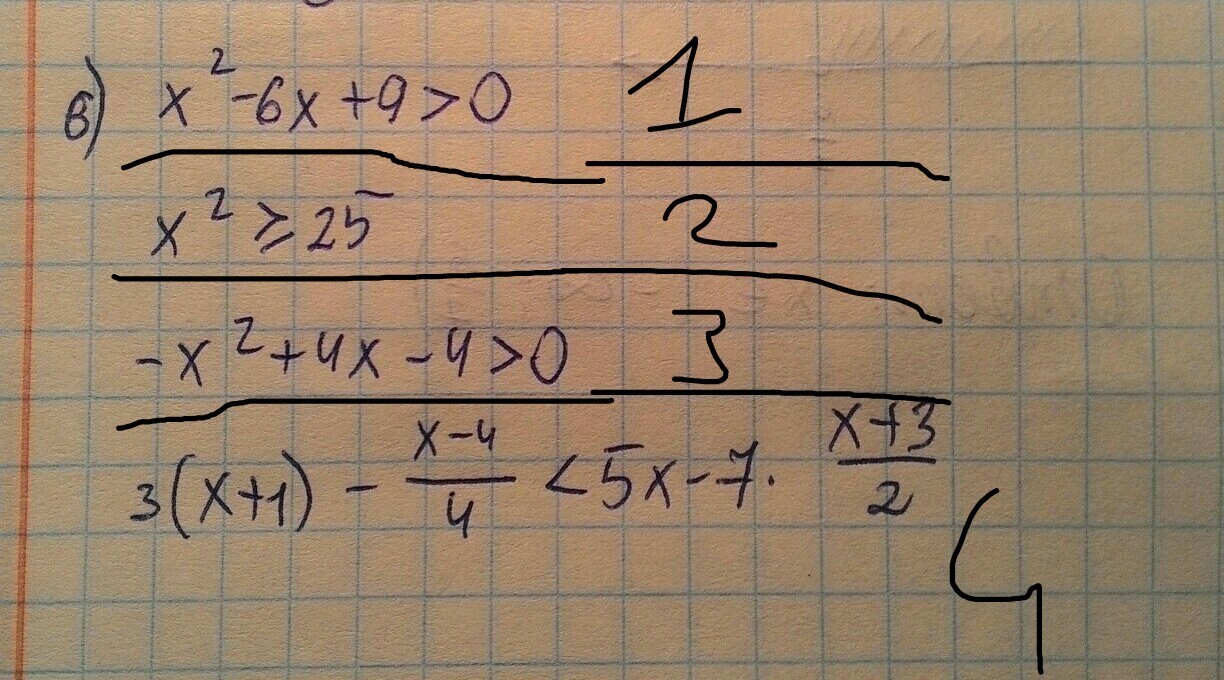 в) x² - 6x + 9 > 0 1
x² ≥ 25 2
-x² + 4x - 4 > 0 3
3(x+1) - (x-4)/4 < 5x - 7 · (x+3)/2 4